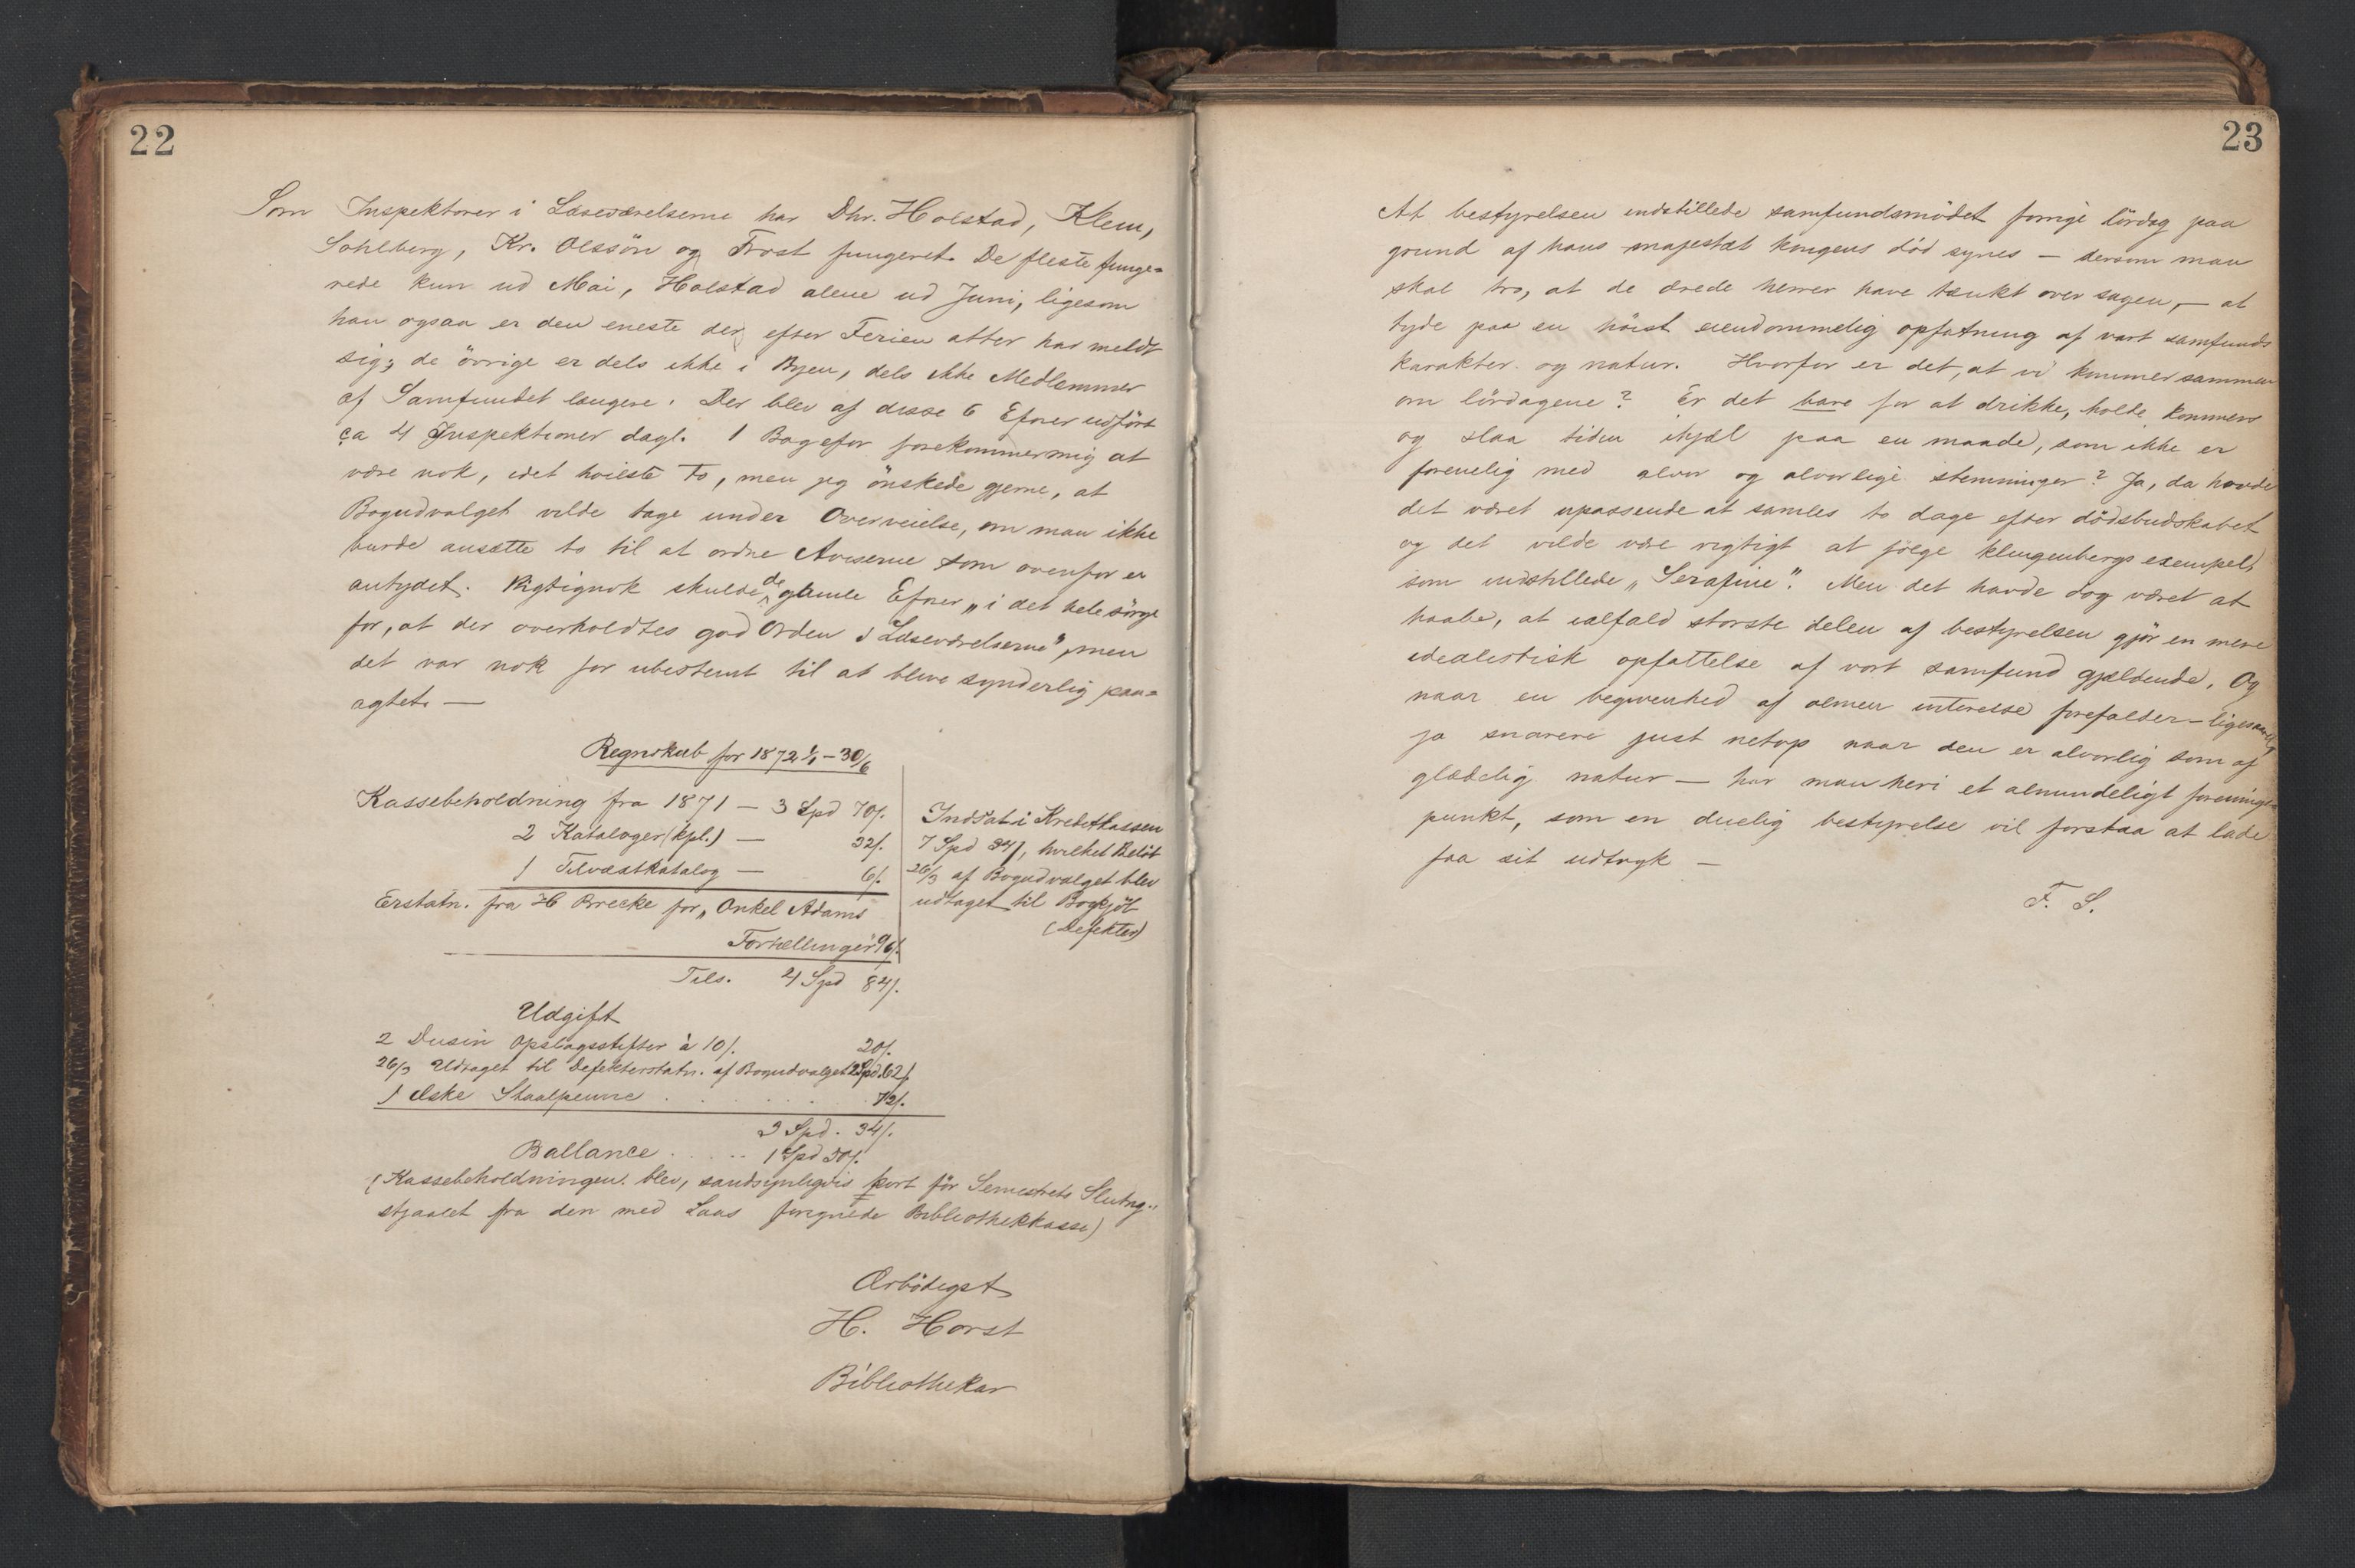 22
Som Inspektorer i Læseværelserne har Dhr. Holstad, Klem,
Sohlberg, Kr. Olssön og Frost fungeret. De fleste funge=
rede kun ud Mai, Holstad alene ud Juni, ligesom
han ogsaa er den eneste der efter Ferien atter har meldt
sig; de övrige er dels ikke i Byen, dels ikke Medlemmer
af Samfundet længere. Der blev af disse 6 Eforer udfört
ca 4 Inspektioner dagl. 1 Bogefor forekommer mig at
være nok, idet höieste to, men jeg önskede gjerne, at
Bogudvalget vilde tage under Overveielse, om man ikke
burde ansætte to til at ordne Aviserne som ovenfor er
antydet. Rigtignok skulde de gamle Eforer „i det hele sörge
for, at der overholdtes god Orden i Læseværelserne", men
det var nok for ubestemt til at blive synderlig paa=
agtet. —
Regnskab for 1872 1/1 – 30/6
Kassebeholdning fra 1871 — 3 Spd 70/.
2 Kataloger (kpl.) — 32/.
1 Tilvæxtkatalog — 6/.
Erstatn. fra H Brecke for „Onkel Adams
Fortællinger" 96/.
Tils. 4 Spd 84/.
Indsat i Kreditkassen
7 Spd 34/, hvilket Belöb
26/3 af Bogudvalget blev
udtaget til Bogkjöb
(Defekter)
Udgift
2 Dusin Opslagsstifter à 10/. 20/.
26/3 Udtaget til Defekterstatn. af Bogudvalget 2 Spd. 62/.
1 Æske Staalpenne . . . . . 72/.
3 Spd. 34/.
Ballance . . . . 1 Spd 50/.
(Kassebeholdningen blev, sandsynligvis kort för Semestrets Slutng.,
stjaalet fra den med Laas forsynede Bibliothekkasse)
Ærbödigst
H. Horst
Bibliothekar
23
At bestyrelsen indstillede samfundsmödet forrige lördag paa
grund af hans majestæt kongens död synes — dersom man
skal tro, at de ærede herrer have tænkt over sagen, — at
tyde paa en höist eiendommelig opfatning af vort samfunds
karakter og natur. Hvorfor er det, at vi kommer sammen
om lördagene? Er det bare for at drikke, holde kommers
og slaa tiden ihjæl paa en maade, som ikke er
forenelig med alvor og alvorlige stemninger? Ja, da havde
det været upassende at samles to dage efter dödsbudskabet
og det vilde være rigtigt at fölge klingenbergs exempel,
som indstillede „Serafine". Men det havde dog været at
haabe, at ialfald störste delen af bestyrelsen gjör en mere
idealistisk opfattelse af vort samfund gjældende. Og
naar en begivenhed af almen interesse forefalder – ligesaavel,
ja snarere just netop naar den er alvorlig som af
glædelig natur — har man heri et almindeligt forenings=
punkt, som en duelig bestyrelse vil forstaa at lade
faa sit udtryk —
F. S.